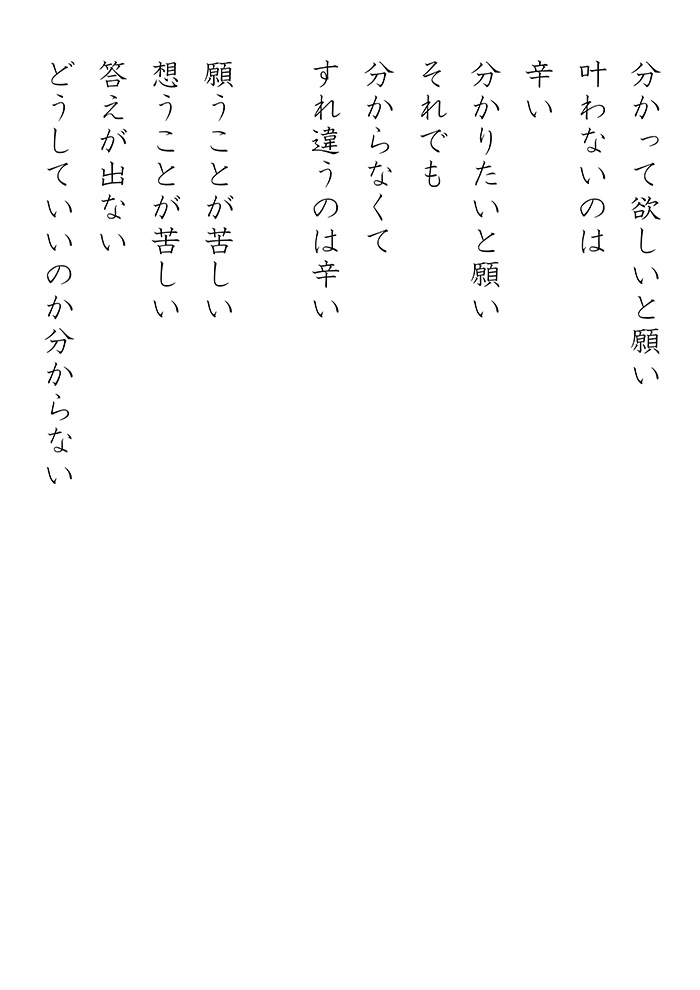 分かって欲しいと願い
叶わないのは
辛い
分かりたいと願い
それでも
分からなくて
すれ違うのは辛い
願うことが苦しい
想うことが苦しい
答えが出ない
どうしていいのか分からない